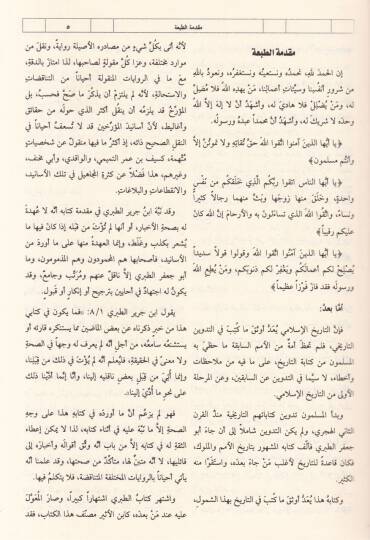 مقدمة الطبعة
٥
مقدمة الطبعة
إن الحمدَ للهِ، نحمدُه ونستعينُه ونستغفرُه، ونعوذُ باللهِ
من شرورِ أنفُسِنا وسيِّئاتِ أعمالِنا، مَنْ يهدِهِ اللهُ فلا مُضِلَّ
له، ومَنْ يُضْلِلْ فلا هاديَ له، وأشهدُ أنْ لا إلهَ إلاَّ اللهُ
وحدَه لا شريكَ له، وأشهَدُ أنَّ محمداً عبدُهُ ورسولُه.
﴿يا أيُّها الذين آمنوا اتَّقوا اللهَ حقَّ تُقاتِهِ ولا تموتُنَّ إلاَّ
وأنتُم مسلمون﴾
﴿يا أيُّها الناس اتقوا ربَّكُم الَّذِي خَلَقَكُم من نفْسٍ
واحدةٍ، وخَلَق منها زوجَها وبثَّ منهما رجالاً كثيراً
ونساءً، واتَّقوا اللهَ الذي تساءلون به والأرحامَ إنَّ اللهَ كان
عليكم رقيباً﴾
﴿يا أيُّها الذينَ آمَنوا اتَّقوا اللهَ وقولوا قولاً سديداً
يُصْلِحْ لكم أعمالَكُم ويَغْفِرْ لكم ذنوبَكم، ومَنْ يُطِعِ اللهَ
ورسولَه فقد فازَ فوْزاً عظيماً﴾
أمَّا بعدُ:
فإنَّ التاريخَ الإسلامي يُعَدُّ أوثقَ ما كُتِبَ في التدوينِ
التاريخي، فلم تحظَ أمةٌ من الأممِ السابقةِ بما حظِيَ به
المسلمون من كتابةِ التاريخ، على ما فيه من ملاحظات
وأخطاء، لا سيَّما في التدوين عن السابقين، وعن المرحلة
الأولى من التاريخ الإسلامي.
وبدأ المسلمون تدوين كتاباتهم التاريخية منذُ القرن
الثاني الهجري، ولم يكن التدوين شاملاً إلى أن جاءَ أبو
جعفر الطبري فألَّف كتابَه المشهورَ بتاريخ الأمم والملوك،
فكان قاعدةً للتاريخ لأغلب مَنْ جاءَ بعدَه، واستقَرَّا منه
الكثير.
وكتابةُ هذا يُعدُّ أوثقَ ما كُتبَ في التاريخِ بهذا الشمولِ،
لأنَّه أتى بكُلِّ شيءٍ من مصادره الأصيلة روايةً، ونقلَ من
موارد مختلفة، وعزا كُلَّ مقولةٍ لصاحبها، لذا امتازَ بالدقةِ،
مع ما في الرواياتِ المنقولةِ أحياناً من التناقضاتِ
والاستحالة، لأنَّه لم يلتزمْ أن يذكُرَ ما صحَّ فحسبُ، بل
المؤرِّخُ قد يلزمُه أن ينقُلَ أكثرَ الذي حولَه من حقائق
وأغاليط، لأنَّ أسانيدَ المؤرِّخين قد لا تُسعفُ أحياناً في
النقلِ الصحيحِ ذاتِه، إذ أكثرُ ما فيها منقولٌ عن شخصياتٍ
مُتَّهمة، كسيف بن عمر التميمي، والواقدي، وأبي مخنف،
وغيرهم، هذا فضلاً عن كثرةِ المجاهيل في تلك الأسانيد،
والانقطاعات والبلاغات.
وقد نبَّه ابنُ جرير الطبري في مقدمةِ كتابه أنه لا عُهدةَ
له بصحةِ الأخبار، أو أنها لم تُؤتَ من قبَله إذا كانَ فيها ما
يُشعر بكذبٍ وغلَط، وإنما العهدةُ منها على ما أوردَ من
الأسانيدِ، فأصحابها هم المحمودون وهم المذمومون، وما
أبو جعفر الطبري إلاَّ ناقلٌ عنهم ومُرَتِّب وجامعٌ، وقد
يكونُ له اجتهادٌ في أحايين بترجيحٍ أو إنكار أو قَبول.
يقول ابن جرير الطبري ٨/١: «فما يكون في كتابي
هذا من خبرٍ ذكرناه عن بعضِ الماضين مما يستنكره قارئه أو
يستشنعُه سامعُه، من أجلِ أنَّه لم يعرف له وجهاً في الصحةِ
ولا معنىً في الحقيقةِ، فليُعلم أنَّه لم يُؤْتَ في ذلك مِن قِبَلِنا،
وإنما أُتِيَ من قِبَلِ بعضِ ناقليه إلينا، وأنَّا إنَّما أدَّينا ذلك
على نحوِ ما أُدِّيَ إلينا».
فهو لم يزعُم أنَّ ما أوردَه في كتابه هذا على وجهِ
الصحةِ إلاَّ ما نبَّهَ عليه في أثناءِ كتابه، لذا لا يمكن إعطاء
الثقة له في كتابه إلاَّ من باب أنَّه وثَّق أقوالَه وأخباره إلى
قائليها، لا أنَّه متبنٍّ لها، متأكّدٌ من صحتها، وقد علمنا أنَّه
يأتي أحياناً بالرواياتِ المختلفة المتناقضة، فلا يتكلم فيها.
واشتهر كتابُ الطبري اشتهاراً كبيراً، وصارَ المُعَوَّل
عليه عند مَنْ بعدَه، كابن الأثير مصنِّف هذا الكتاب، فقد